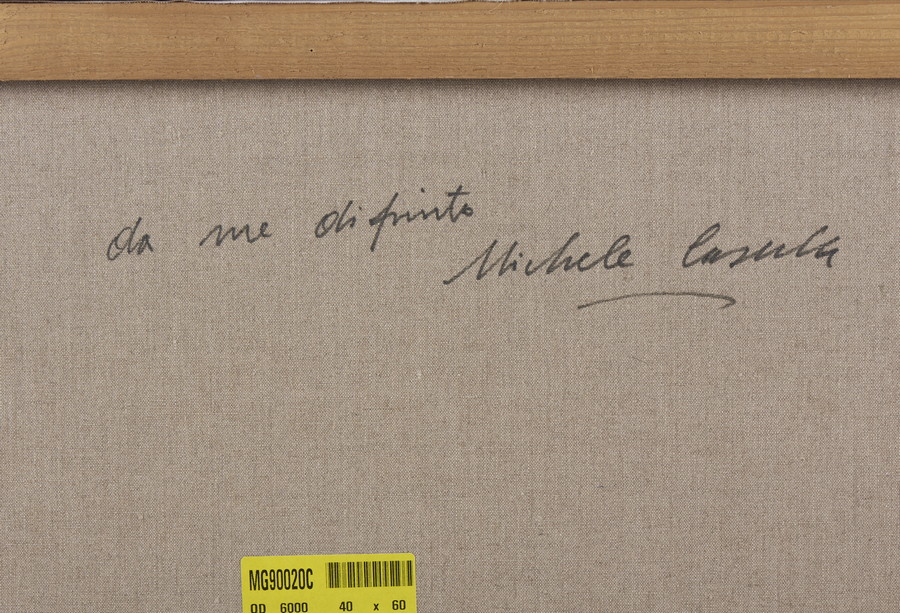 da me dipinto
Michele Cascella
MG90020C
QD 6000 40 x 60